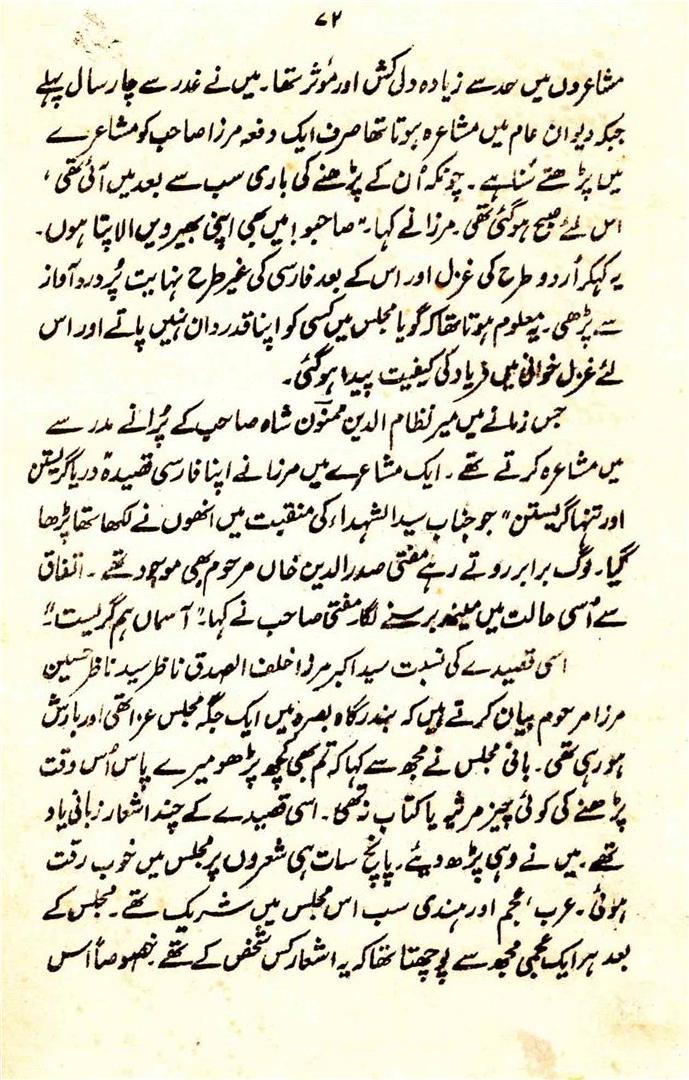 ۷۲
مشاعروں میں حد سے زیادہ دلی کش اور مؤثر تھا۔ میں نے غدر سے چار سال پہلے
جبکہ دیوان عام میں مشاعرہ ہوتا تھا صرف ایک دفعہ مرزا صاحب کو مشاعرے
میں پڑھتے سُنا ہے۔ چونکہ اُن کے پڑھنے کی باری سب سے بعد میں آئی تھی،
اس لئے صبح ہو گئی تھی۔ مرزا نے کہا۔ "صاحبو! میں بھی اپنی بھیرویں الاپتا ہوں۔
یہ کہکر اُردو طرح کی غزل اور اس کے بعد فارسی کی غیر طرح نہایت پُر درد آواز
سے پڑھی۔ یہ معلوم ہوتا تھا کہ گویا مجلس میں کسی کو اپنا قدردان نہیں پاتے اور اس
لئے غزل خوانی میں فریاد کی کیفیت پیدا ہو گئی۔
جس زمانے میں میر نظام الدین ممنونؔ شاہ صاحب کے پُرانے مدرسے
میں مشاعرہ کرتے تھے۔ ایک مشاعرے میں مرزا نے اپنا فارسی قصیدہ دریا گریستن
اور تنہا گریستن" جو جناب سید الشہداء کی منقبت میں انھوں نے لکھا تھا پڑھا
گیا۔ وگ برابر روتے رہے مفتی صدر الدین خاں مرحوم بھی موجود تھے۔ اتفاق
سے اُسی حالت میں مینھ برسنے لگا۔ مفتی صاحب نے کہا۔ "آسماں ہم گریست"۔
اسی قصیدے کی نسبت سید اکبر مرزا خلف الصدق ناظر سید ناظر حسین
مرزا مرحوم بیان کرتے ہیں کہ بندرگاہ بصرہ میں ایک جگہ مجلس عزا تھی اور بارش
ہو رہی تھی۔ بانی مجلس نے مجھ سے کہا کہ تم بھی کچھ پڑھو میرے پاس اُس وقت
پڑھنے کی کوئی چیز مرثیہ یا کتاب نہ تھی۔ اسی قصیدے کے چند اشعار زبانی یاد
تھے۔ میں نے وہی پڑھ دیئے۔ پانچ سات ہی شعروں پر مجلس میں خوب رقت
ہوئی۔ عرب، عجم اور ہندی سب اس مجلس میں شریک تھے۔ مجلس کے
بعد ہر ایک عجمی مجھ سے پوچھتا تھا کہ یہ اشعار کس شخص کے تھے۔ خصوصاً اس